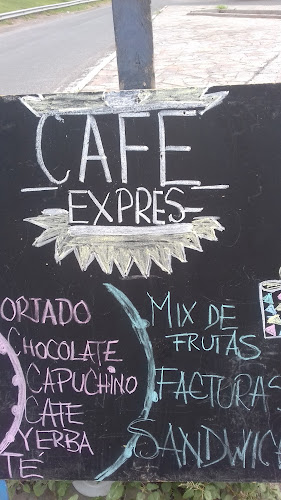 CAFE
EXPRES
ORTADO
CHOCOLATE
CAPUCHINO
CATE
YERBA
TÉ
MIX DE
FRUTAS
FACTURAS
SANDWIC